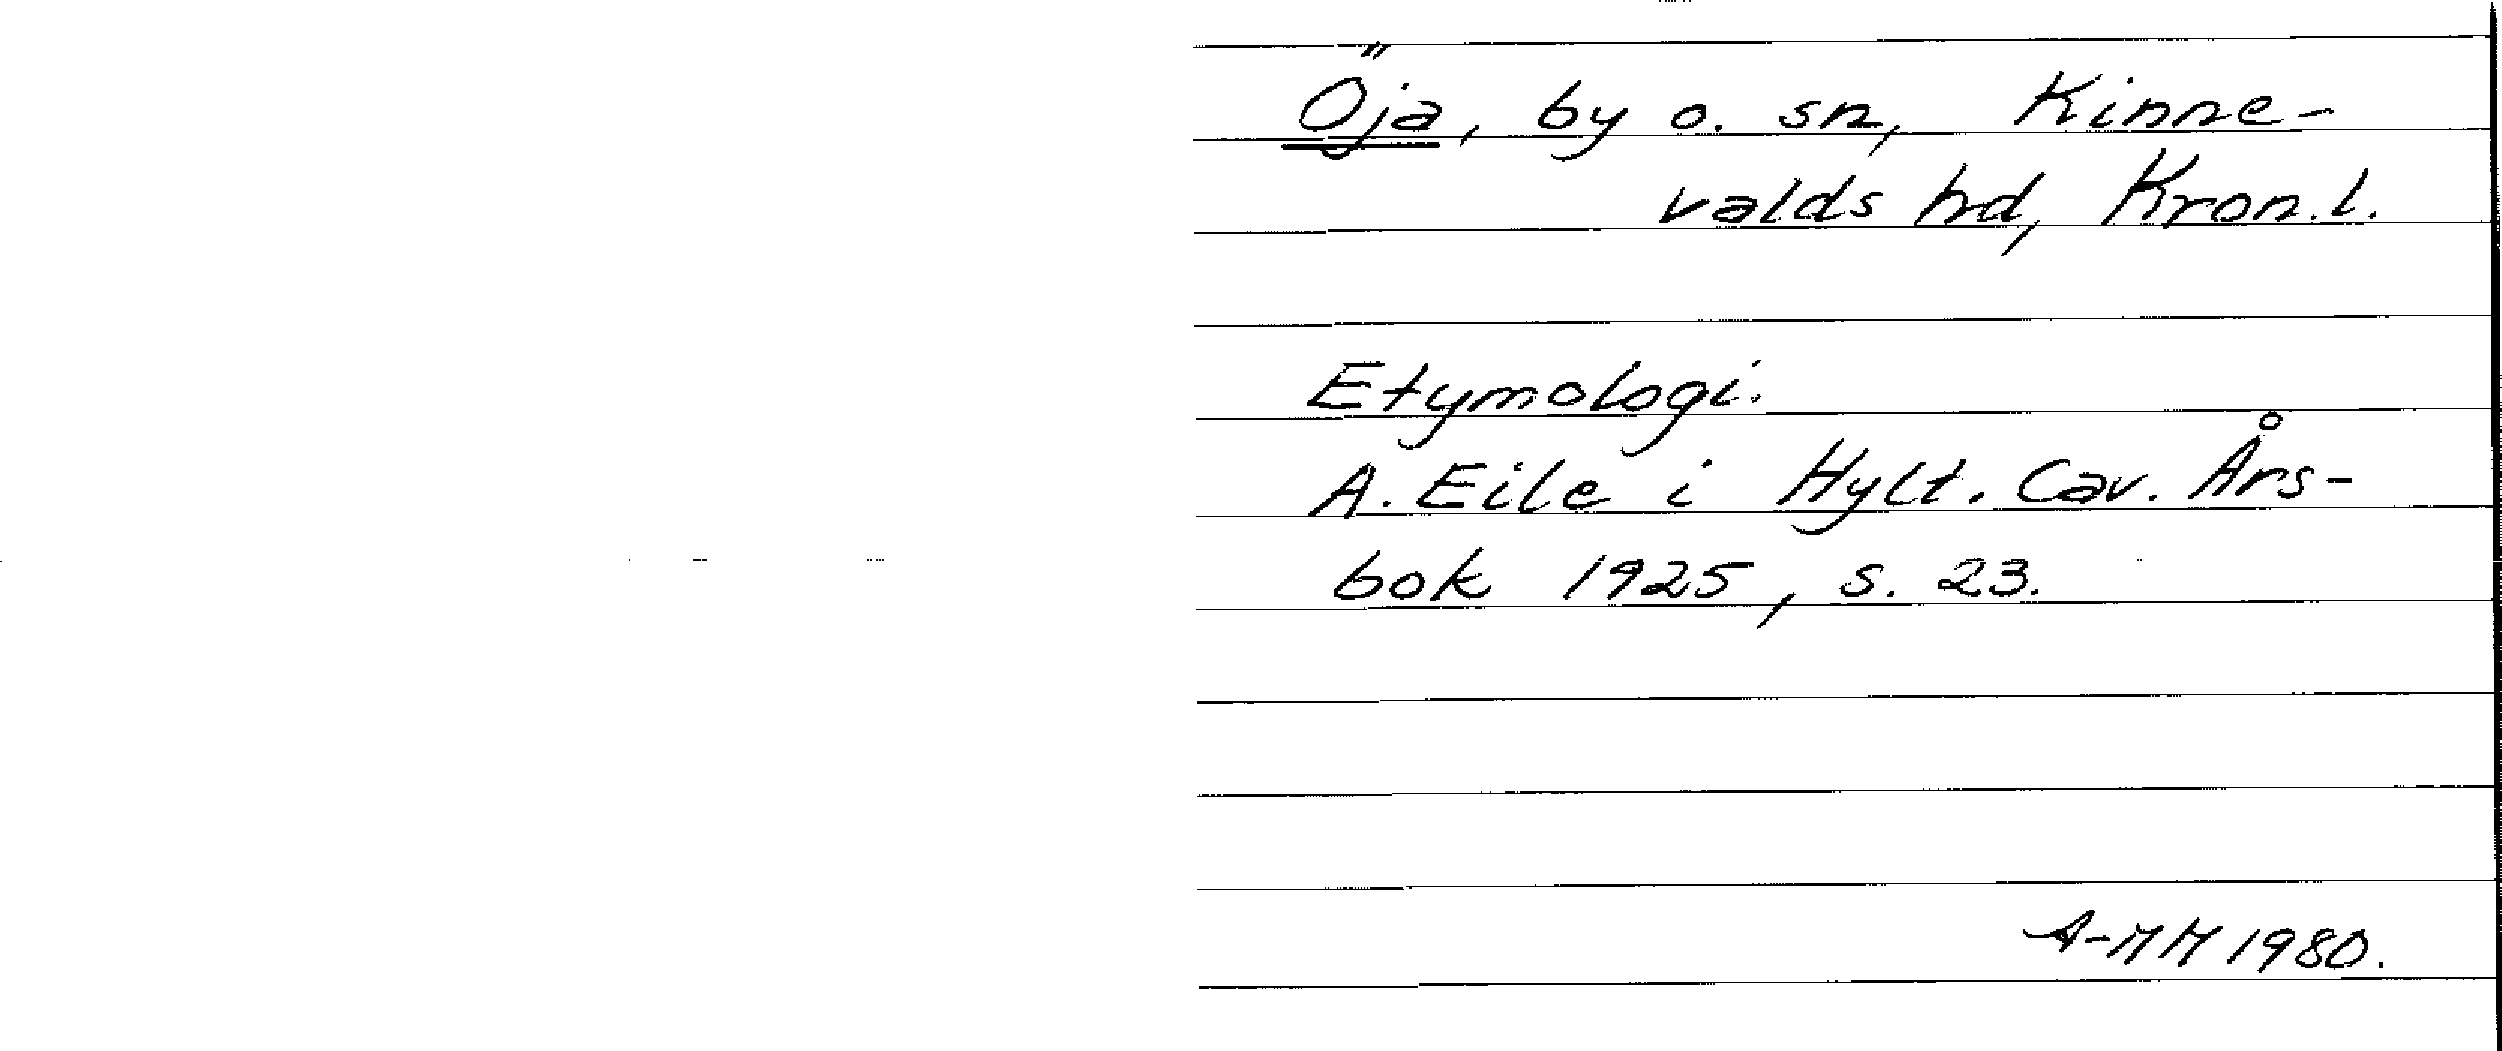 Öja, by o. sn, Kinne-
valds hd, Kron.l.
Etymologi.
A. Eile i Hylt. Cav. Års-
bok 1925, s. 23.
A-MH 1980.